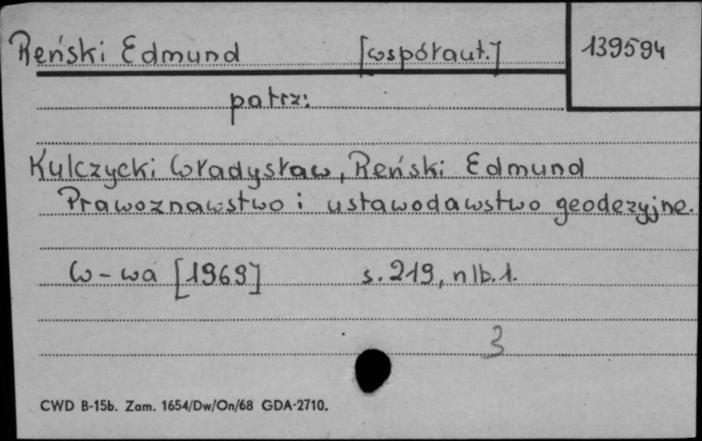 Reński Edmund [współaut.] 139594
patrz:
Kulczycki Władysław, Reński Edmund
Prawoznawstwo i ustawodawstwo geodezyjne.
W-wa [1969] s. 219, nlb. 1.
3
CWD B-15b. Zam. 1654/Dw/On/68 GDA-2710.